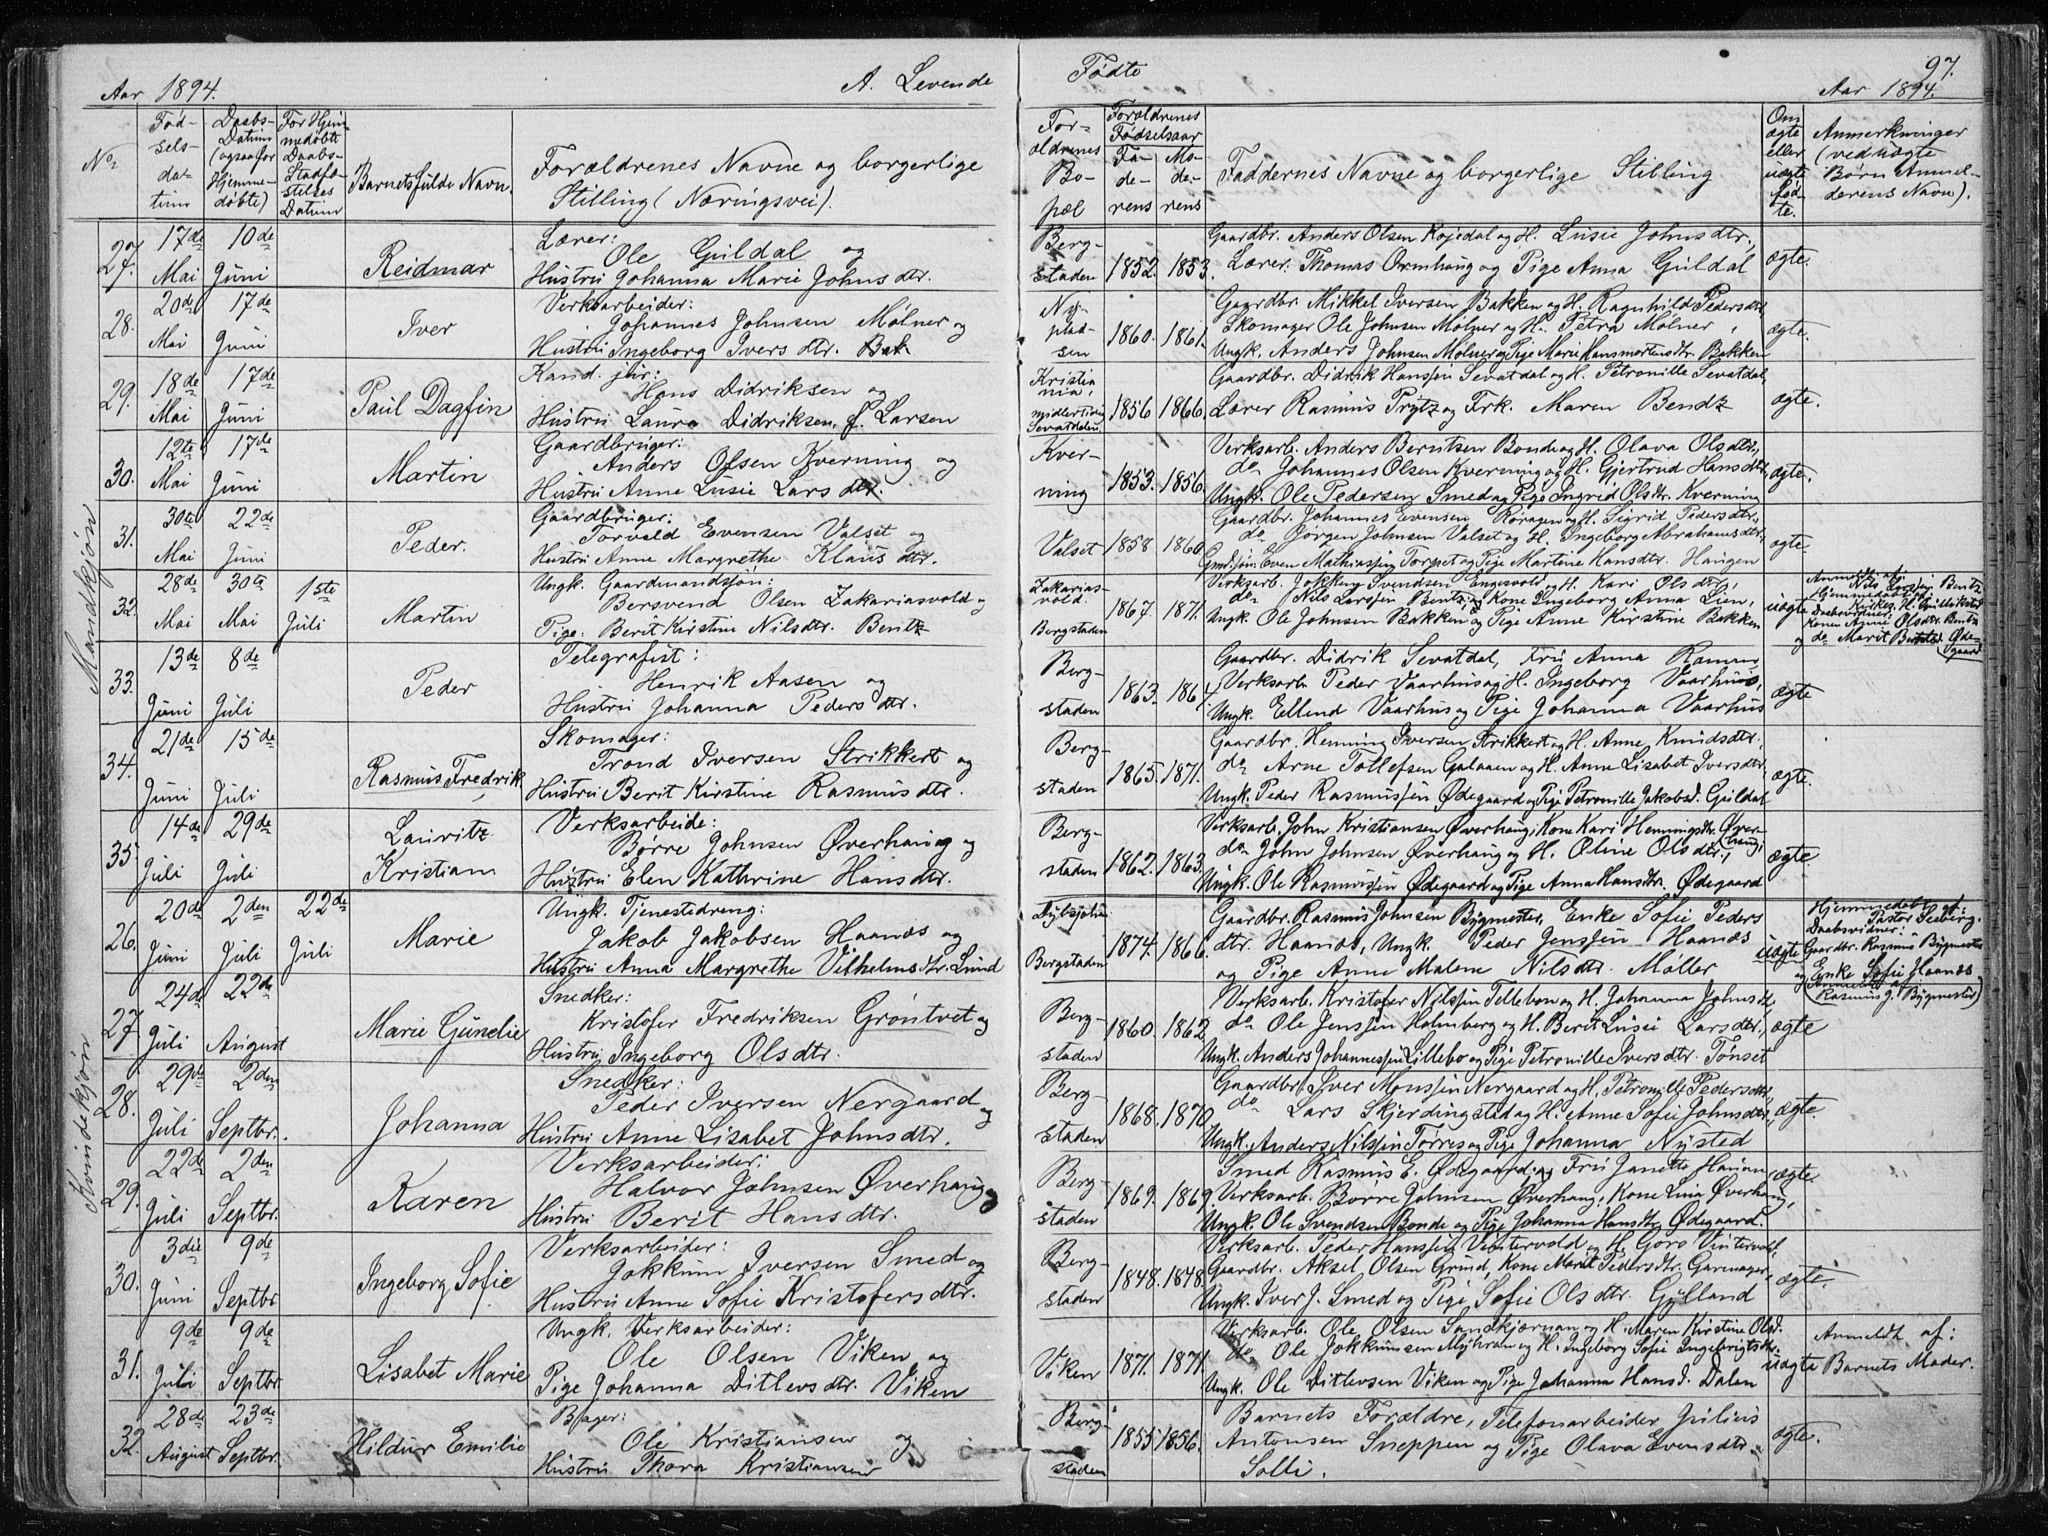 Aar 1894. A. Levende Fødte 97.
Aar 1894.
No
Fødselsdatum
Daabs-Datum (ogsaa for Hjemmedøbte)
For Hjemmedøbte Daabs-Stadfæstelses Datum
Barnets fulde Navn.
Forældrenes Navne og borgerlige Stilling (Næringsvei).
Forældrenes Bopæl
Forældrenes Fødselsaar
Faderens
Moderens
Faddernes Navne og borgerlige Stilling
Om ægte eller uægte født.
Anmerkninger (ved uægte Børn Anmelderens Navn).
Mandkjøn
27. 17de Mai 10de Juni Reidmar
Lærer:
Ole Guldal og
Hustru Johanna Marie Johnsdtr.
Bergstaden 1852. 1853.
Gaardbr. Anders Olsen Kojedal og H. Lusie Johnsdtr.,
Lærer Thomas Ormhaug og Pige Anna Guldal
ægte.
28. 20de Mai 17de Juni Iver
Verksarbeider:
Johannes Johnsen Mølner og
Hustru Ingeborg Iversdtr. Bak
Nypladsen 1860. 1861.
Gaardbr. Mikkel Iversen Bakken og H. Ragnhild Pedersdtr
Skomager Ole Johnsen Mølner og H. Petra Mølner,
Ungk. Anders Johnsen Mølner og Pige Marie Hansmortensdtr. Bakken
ægte.
29. 18de Mai 17de Juni Paul Dagfin
Kand. jur:
Hans Didriksen og
Hustru Laura Didriksen, f. Larsen
Kristiania, midlertidig Sevatdalen 1856 1866.
Gaardbr. Didrik Hanssen Sevatdal og H. Petronille Sevatdal,
Lærer Rasmus Prytz og Frk. Maren Bendz
ægte.
30. 12te Mai 17de Juni Martin
Gaardbruger:
Anders Olsen Kverning og
Hustru Anne Lusie Larsdtr.
Kverning 1853. 1856.
Verksarb. Anders Berntsen Bonde og H. Olava Olsdtr.,
do Johannes Olsen Kverning og H. Gjertrud Hansdtr,
Ungk. Ole Pedersen Smed og Pige Ingrid Olsdtr. Kverning
ægte.
31. 30te Mai 22de Juni Peder.
Gaardbruger:
Torvald Evensen Valset og
Hustru Anne Margrethe Klausdtr.
Valset 1858 1860
Gaardbr. Johannes Evensen Røragen og H. Sigrid Pedersdtr.,
do Jørgen Johnsen Valset og H. Ingeborg Abrahamsdtr,
Gmdsjøn Even Mathiassen Torpet og Pige Martine Hansdtr. Haugen
ægte
32. 28de Mai 30te Mai 1ste Juli Martin
Ungk. Gaardmandssøn:
Bersvend Olsen Zakariasvold og
Pige Berit Kirstine Nilsdtr. Bentz
Zakariasvold. Bergstaden 1867. 1871.
Verksarb. Jokkum Svendsen Engesvold og H. Kari Olsdtr,
do Nils Larssen Bentz og Kone Ingeborg Anna Lien,
Ungk. Ole Johnsen Bakken og Pige Anne Kirstine Bakken
uægte
Anmeldt af: Nils Larssen Bentz
Hjemmedøbt af
Daabsvidner:
Kone Anne Olsdtr. Bentz
og do Marit Ødegaard
33. 13de Juni 8de Juli Peder
Telegrafist:
Henrik Aasen og
Hustru Johanna Pedersdtr.
Bergstaden 1863. 1864.
Gaardbr. Didrik Sevatdal, Fru Anna
Verksarb. Peder Vaarhus og H. Ingeborg Vaarhus,
Ungk. Ellend Vaarhus og Pige Johanna Vaarhus
ægte
34. 21de Juni 15de Juli Rasmus Fredrik
Skomager:
Trond Iversen Strikkert og
Hustru Berit Kirstine Rasmusdtr.
Bergstaden 1865. 1871.
Gaardbr. Henning Iversen Strikkert og H. Anne Knudsdtr.
do Arne Tollefsen Galaaen og H. Anne Lisabet Iversdtr
Ungk. Peder Rasmussen Ødegaard og Pige Petronille Jakobsd. Guldal
ægte.
35. 14de Juli 29de Juli Lauritz Kristian
Verksarbeide:
Børre Johnsen Øverhaug og
Hustru Elen Kathrine Hansdtr.
Bergstaden 1862. 1863.
Verksarb. John Kristiansen Øverhaug, Kone Kari Henningsdtr. Øverhaug,
do John Johnsen Øverhaug og H. Oline Olsdtr.,
Ungk. Ole Rasmussen Ødegaard og Pige Anna Hansdtr. Ødegaard
ægte
Kvindekjøn
26. 20de Juni 2den Juli 22de Juli Marie
Ungk. Tjenestedreng:
Jakob Jakobsen Haanæs og
Hustru Anna Margrethe Vilhelmsdtr. Lund
Bergstaden 1874. 1866.
Gaardbr. Rasmus Johnsen Bygmester, Enke Sofie Peders
dtr. Haanæs, Ungk. Peder Jenssen Haanæs
og Pige Anne Malene Nilsdtr. Møller
uægte
Hjemmedøbt af Pastor Seeberg.
Daabsvidner:
Gaardbr. Rasmus Bygmester
og Enke Sofie Haanæs
(Anmeldt af Rasmus J. Bygmester)
27. 24de Juli 22de August Marie Gunelie
Snedker:
Kristofer Fredriksen Grøntvet og
Hustru Ingeborg Olsdtr.
Bergstaden 1860. 1862
Verksarb. Kristofer Nilssen Tellebon og H. Johanna Johnsd,
do Ole Jenssen Holmberg og H. Berit Lusie Larsdtr.,
Ungk. Anders Johannessen Lillebo og Pige Petronille Iversdtr. Tønset
ægte
28. 29de Juli 2den Septbr. Johanna
Snedker:
Peder Iversen Nergaard og
Hustru Anne Lisabet Johnsdtr.
Bergstaden 1868. 1870
Gaardbr. Iver Monssen Nergaard og H. Petronille Pedersdtr,
do Lars Skjerdingstad og H. Anne Sofie Johnsdtr,
Ungk. Anders Nilssen Tørres og Pige Johanna Nysted
ægte.
29. 22de Juli 2den Septbr. Karen
Verksarbeider:
Halvor Johnsen Øverhaug og
Hustru Berit Hansdtr.
Bergstaden 1869. 1869.
Smed Rasmus E. Ødegaard og Fru Janette
Verksarb. Børre Johnsen Øverhaug, Kone Lina Øverhaug,
Ungk. Ole Svendsen Bonde og Pige Johanna Hansdtr Ødegaard.
ægte
30. 3die Juni 9de Septbr Ingeborg Sofie
Verksarbeider:
Jokkum Iversen Smed og
Hustru Anne Sofie Kristofersdtr.
Bergstaden 1848. 1848.
Verksarb. Peder Hanssen Vintervold og H. Goro Vintervold,
Gaardbr. Aksel Olsen Grund, Kone Marit Pedersdtr. Garmager,
Ungk. Iver J. Smed og Pige Sofie Olsdtr. Gylland
ægte.
31. 9de Juli 9de Septbr. Lisabet Marie
Ungk. Verksarbeider:
Ole Olsen Viken og
Pige Johanna Ditlevsdtr. Viken
Viken 1871. 1871.
Verksarb. Ole Olsen Sandkjærnan og H. Maren Kirstine Olsd.
do Ole Jokkumsen Myhran og H. Ingeborg Sofie Ingebrigtsdtr.
Ungk. Ole Ditlevsen Viken og Pige Johanna Hansd. Dalen
uægte
Anmeldt af:
Barnets Moder.
32. 28de August 23de Septbr. Hildur Emilie
Bager:
Ole Kristiansen og
Hustru Thora Kristiansen
Bergstaden 1855 1856.
Barnets Forældre, Telefonarbeider Julius
Antonsen Sneppen og Pige Olava Evensdtr.
Solli.
ægte.